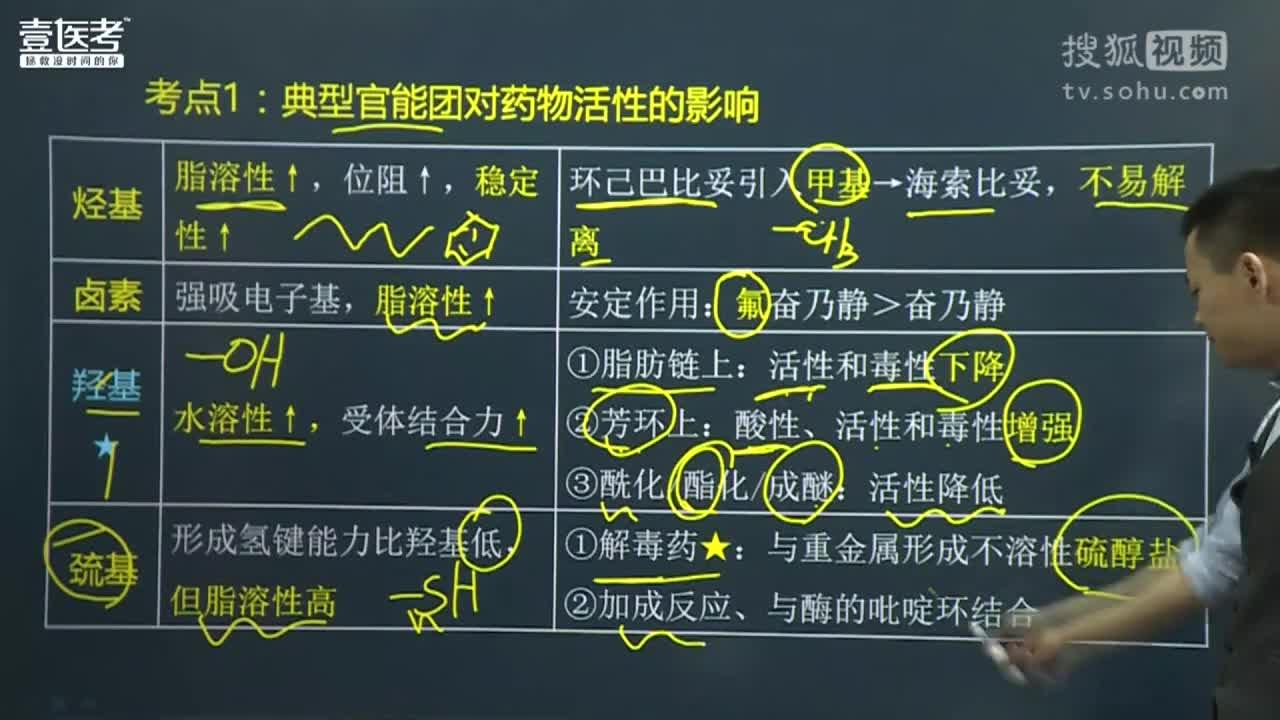 壹医考
TM
拯救没时间的你
搜狐视频
tv.sohu.com
考点1：典型官能团对药物活性的影响
烃基
脂溶性↑，位阻↑，稳定
性↑
环己巴比妥引入甲基→海索比妥，不易解
离
-CH3
卤素
强吸电子基，脂溶性↑
安定作用：氟奋乃静＞奋乃静
羟基
★
-OH
水溶性↑，受体结合力↑
①脂肪链上：活性和毒性下降
②芳环上：酸性、活性和毒性增强
③酰化/酯化/成醚：活性降低
巯基
形成氢键能力比羟基低，
但脂溶性高
-SH
①解毒药★：与重金属形成不溶性硫醇盐
②加成反应、与酶的吡啶环结合